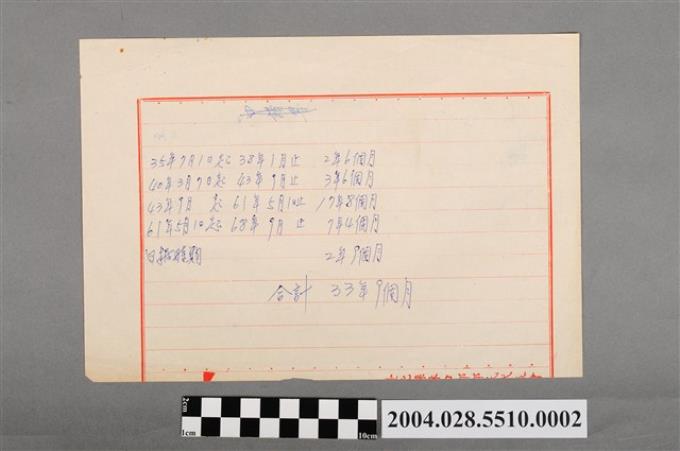 35年7月1日起 38年1月止 2年6個月
40年3月7日起 43年9月止 3年6個月
43年9月 起 61年5月1日止 17年8個月
61年5月1日起 68年9月 止 7年4個月
日 時期 2年9個月
合計 33年9個月
2cm
1cm
10cm
2004.028.5510.0002